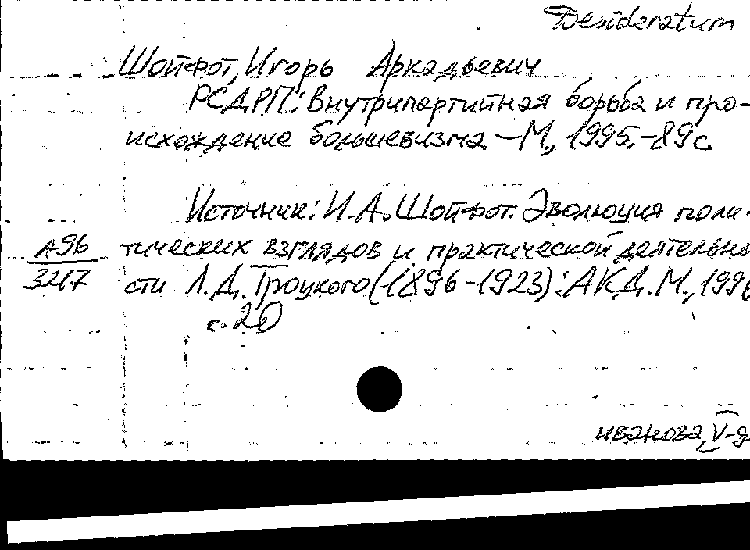 Desideratum
Шойфот, Игорь Аркадьевич
РСДРП: Внутрипартийная борьба и про-
исхождение большевизма. – М., 1995. – 89 с.
Источник: И.А. Шойфот. Эволюция поли-
А96 тических взглядов и практической деятельно
3217 сти Л.Д. Троцкого (1896-1923): АКД. М., 1996
с. 20
иванова, V-9